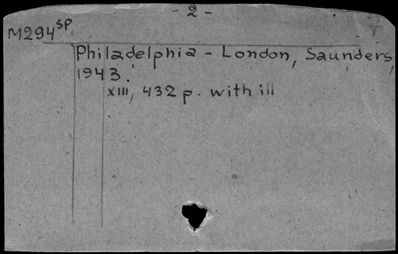 - 2 -
M294sp
Philadelphia - London, Saunders
1943.
XIII, 432 p. with ill